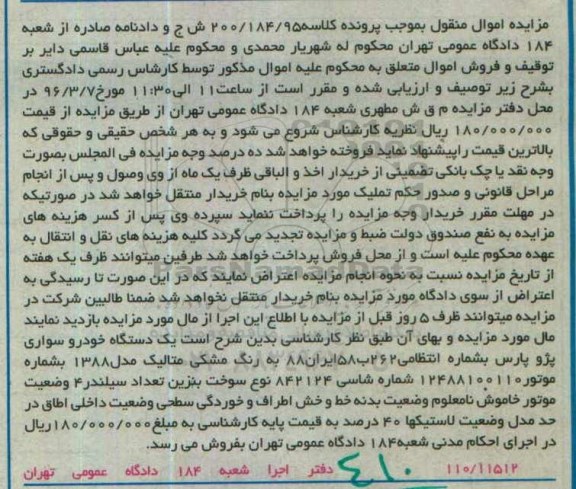 مزایده اموال منقول بموجب پرونده کلاسه۲۰۰/۱۸۴/۹۵ ش ج و دادنامه صادره از شعبه
۱۸۴ دادگاه عمومی تهران محکوم له شهریار محمدی و محکوم علیه عباس قاسمی دایر بر
توقیف و فروش اموال متعلق به محکوم علیه اموال مذکور توسط کارشناس رسمی دادگستری
بشرح زیر توصیف و ارزیابی شده و مقرر است از ساعت۱۱ الی۱۱:۳۰ مورخ۹۶/۳/۷ در
محل دفتر مزایده م ق ش مطهری شعبه ۱۸۴ دادگاه عمومی تهران از طریق مزایده از قیمت
۱۸۰/۰۰۰/۰۰۰ ریال نظریه کارشناس شروع می شود و به هر شخص حقیقی و حقوقی که
بالاترین قیمت راپیشنهاد نماید فروخته خواهد شد ده درصد وجه مزایده فی المجلس بصورت
وجه نقد یا چک بانکی تضمینی از خریدار اخذ و الباقی ظرف یک ماه از وی وصول و پس از انجام
مراحل قانونی و صدور حکم تملیک مورد مزایده بنام خریدار منتقل خواهد شد در صورتیکه
در مهلت مقرر خریدار وجه مزایده را پرداخت ننماید سپرده وی پس از کسر هزینه های
مزایده به نفع صندوق دولت ضبط و مزایده تجدید می گردد کلیه هزینه های نقل و انتقال به
عهده محکوم علیه است و از محل فروش پرداخت خواهد شد طرفین میتوانند ظرف یک هفته
از تاریخ مزایده نسبت به نحوه انجام مزایده اعتراض نمایند که در این صورت تا رسیدگی به
اعتراض از سوی دادگاه مورد مزایده بنام خریدار منتقل نخواهد شد ضمنا طالبین شرکت در
مزایده میتوانند ظرف ۵ روز قبل از مزایده با اطلاع این اجرا از مال مورد مزایده بازدید نمایند
مال مورد مزایده و بهای آن طبق نظر کارشناسی بدین شرح است یک دستگاه خودرو سواری
پژو پارس بشماره انتظامی۲۶۲ب۵۸ایران۸۸ به رنگ مشکی متالیک مدل۱۳۸۸ بشماره
موتور۱۲۴۸۸۱۰۰۱۱۰ شماره شاسی ۸۴۲۱۲۴ نوع سوخت بنزین تعداد سیلندر۴ وضعیت
موتور خاموش نامعلوم وضعیت بدنه خط و خش اطراف و خوردگی سطحی وضعیت داخلی اطاق در
حد مدل وضعیت لاستیکها ۴۰ درصد به قیمت پایه کارشناسی به مبلغ۱۸۰/۰۰۰/۰۰۰ریال
در اجرای احکام مدنی شعبه۱۸۴ دادگاه عمومی تهران بفروش می رسد.
۱۱۰/۱۱۵۱۲ دفتر اجرا شعبه ۱۸۴ دادگاه عمومی تهران
۴۱۰